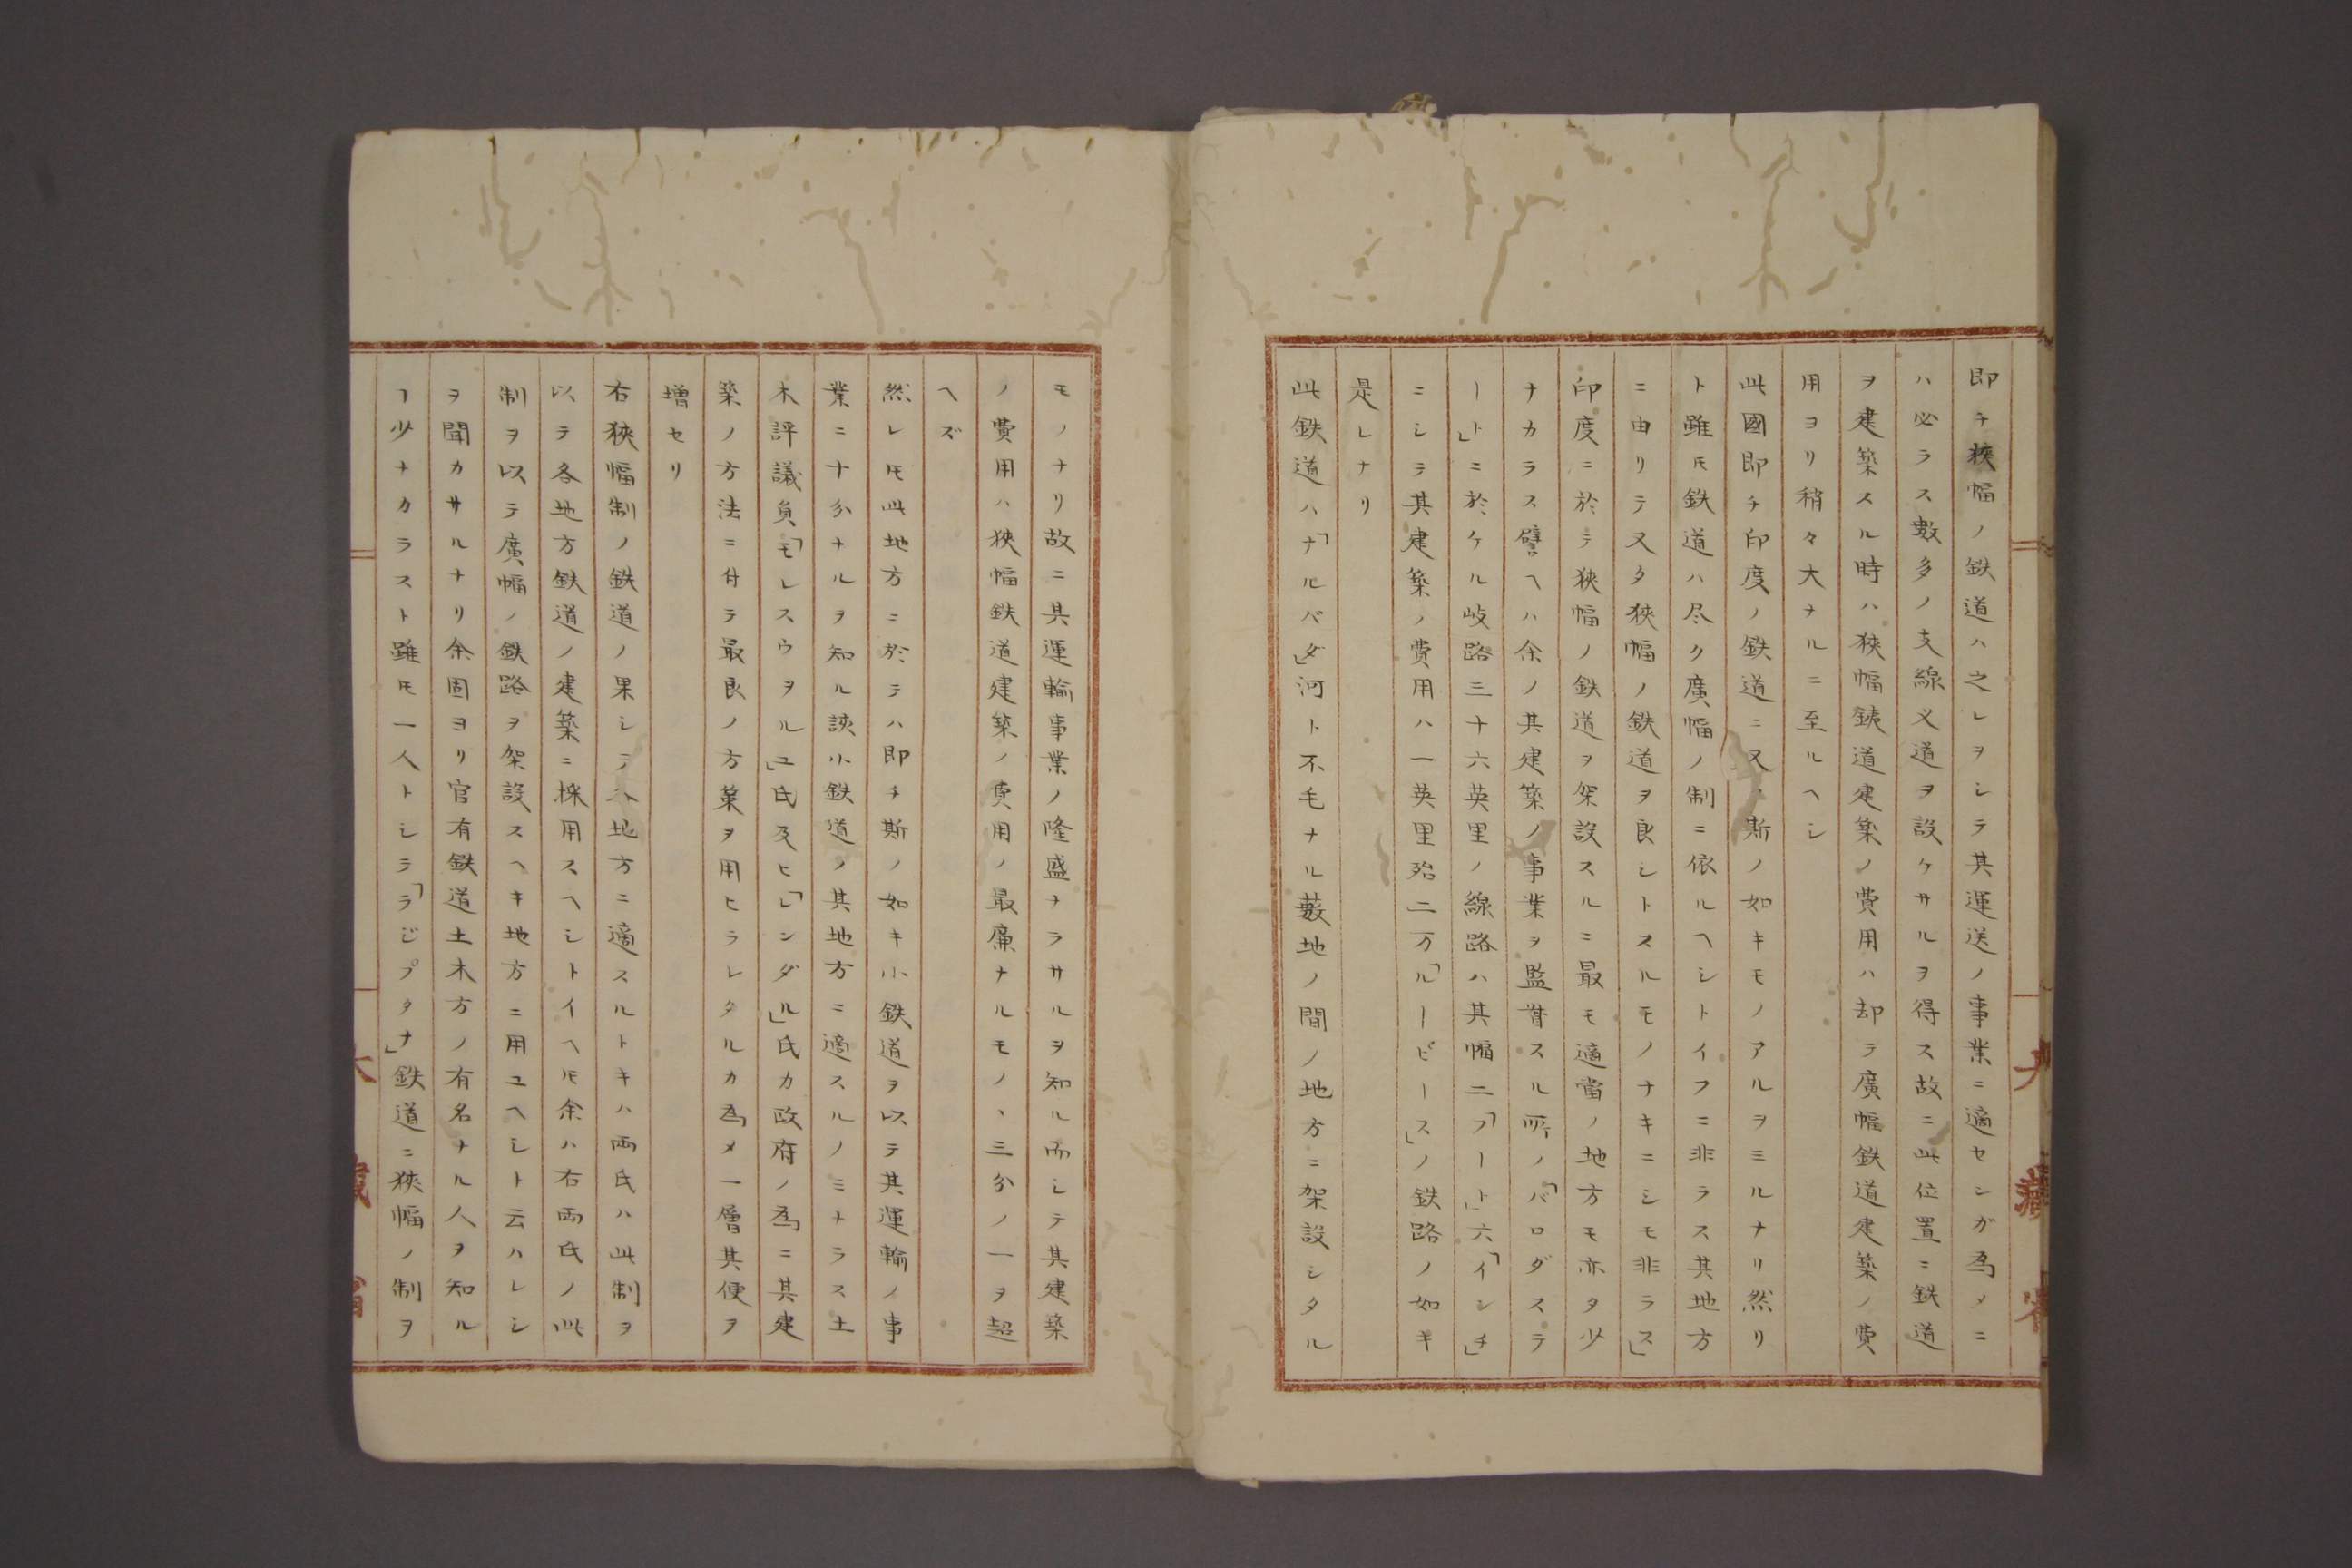 即チ狹幅ノ鉄道ハ之レヲシテ其運送ノ事業ニ適センガ為メニ
ハ必ラス數多ノ支線义道ヲ設ケサルヲ得ス故ニ此位置ニ鉄道
ヲ建築スル時ハ狹幅鉄道建築ノ費用ハ却テ廣幅鉄道建築ノ費
用ヨリ稍々大ナルニ至ルヘシ
此國即チ印度ノ鉄道ニ又斯ノ如キモノアルヲミルナリ然リ
ト雖𪜈鉄道ハ尽ク廣幅ノ制ニ依ルヘシトイフニ非ラス其地方
ニ由リテ又タ狹幅ノ鉄道ヲ良シトスルモノナキニシモ非ラス」
印度ニ於テ狹幅ノ鉄道ヲ架設スルニ最モ適當ノ地方モ亦タ少
ナカラス譬ヘハ余ノ其建築ノ事業ヲ監督スル所ノ「バロダステ
ート」ニ於ケル岐路三十六英里ノ線路ハ其幅二「フート」六「インチ」
ニシテ其建築ノ費用ハ一英里殆二万「ルーピース」ノ鉄路ノ如キ
是レナリ
此鉄道ハ「ナルバダ」河ト不毛ナル藪地ノ間ノ地方ニ架設シタル
モノナリ故ニ其運輸事業ノ隆盛ナラサルヲ知ル而シテ其建築
ノ費用ハ狹幅鉄道建築ノ費用ノ最廉ナルモノヽ三分ノ一ヲ超
ヘズ
然レ𪜈此地方ニ於テハ即チ斯ノ如キ小鉄道ヲ以テ其運輸ノ事
業ニ十分ナルヲ知ル該小鉄道ノ其地方ニ適スルノミナラス土
木評議員「モレスウヲルユ」氏及ヒ「レンダル」氏カ政府ノ為ニ其建
築ノ方法ニ付テ最良ノ方策ヲ用ヒラレタルカ為メ一層其便ヲ
増セリ
右狹幅制ノ鉄道ノ果シテ地方ニ適スルトキハ両氏ハ此制ヲ
以テ各地方鉄道ノ建築ニ採用スヘシトイヘ𪜈余ハ右両氏ノ此
制ヲ以テ廣幅ノ鉄路ヲ架設スヘキ地方ニ用ユヘシト云ハレシ
ヲ聞カサルナリ余固ヨリ官有鉄道土木方ノ有名ナル人ヲ知ル
ヿ少ナカラスト雖𪜈一人トシテ「ラジプタナ」鉄道ニ狹幅ノ制ヲ
大藏省